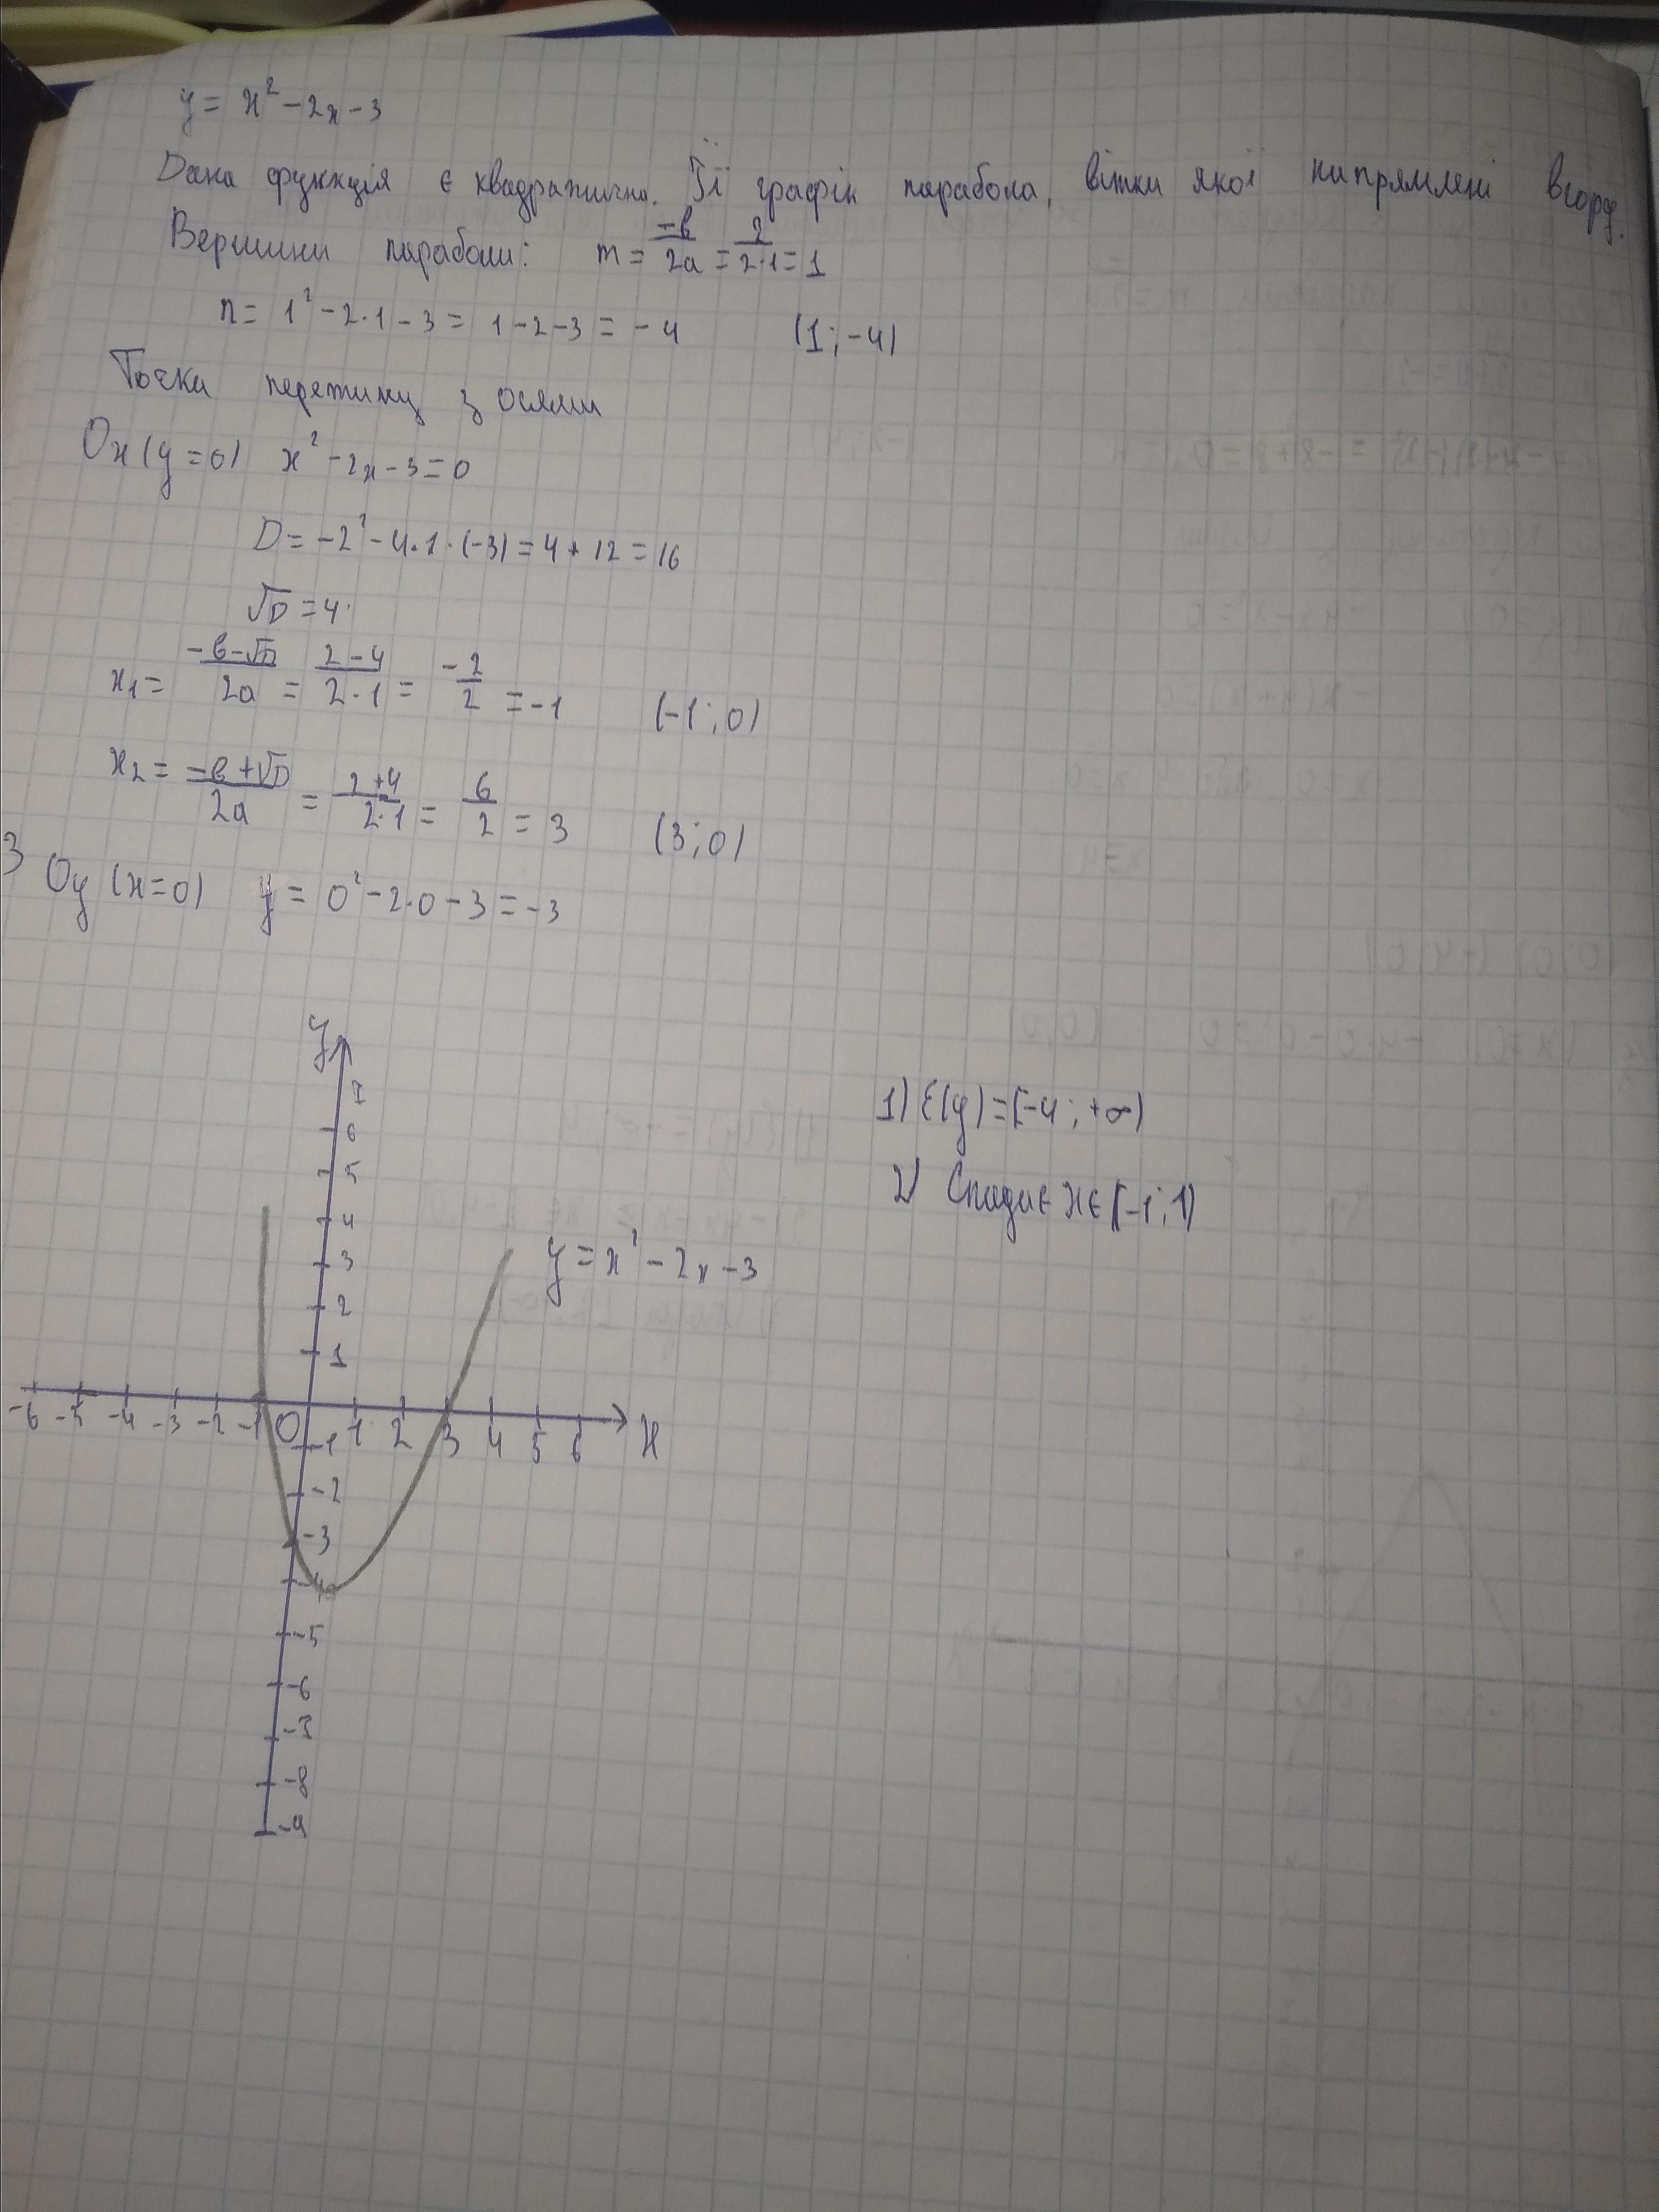 y = x² - 2x - 3
Дана функція є квадратична. Її графік парабола, вітки якої напрямлені вгору.
Вершини параболи: m = -b/2a = 2/2·1 = 1
n = 1² - 2·1 - 3 = 1 - 2 - 3 = -4 (1; -4)
Точка перетину з осями
Ox (y = 0) x² - 2x - 3 = 0
D = -2² - 4·1·(-3) = 4 + 12 = 16
√D = 4
x₁ = -b-√D/2a = 2-4/2·1 = -2/2 = -1 (-1; 0)
x₂ = -b+√D/2a = 2+4/2·1 = 6/2 = 3 (3; 0)
З Oy (x = 0) y = 0² - 2·0 - 3 = -3
y
7
6
5
4
3
2
1
-6 -5 -4 -3 -2 -1 0 1 2 3 4 5 6 x
-1
-2
-3
-4
-5
-6
-7
-8
-9
y = x² - 2x - 3
1) E(y) = [-4; +∞)
2) Спадає x ∈ [-1; 1)